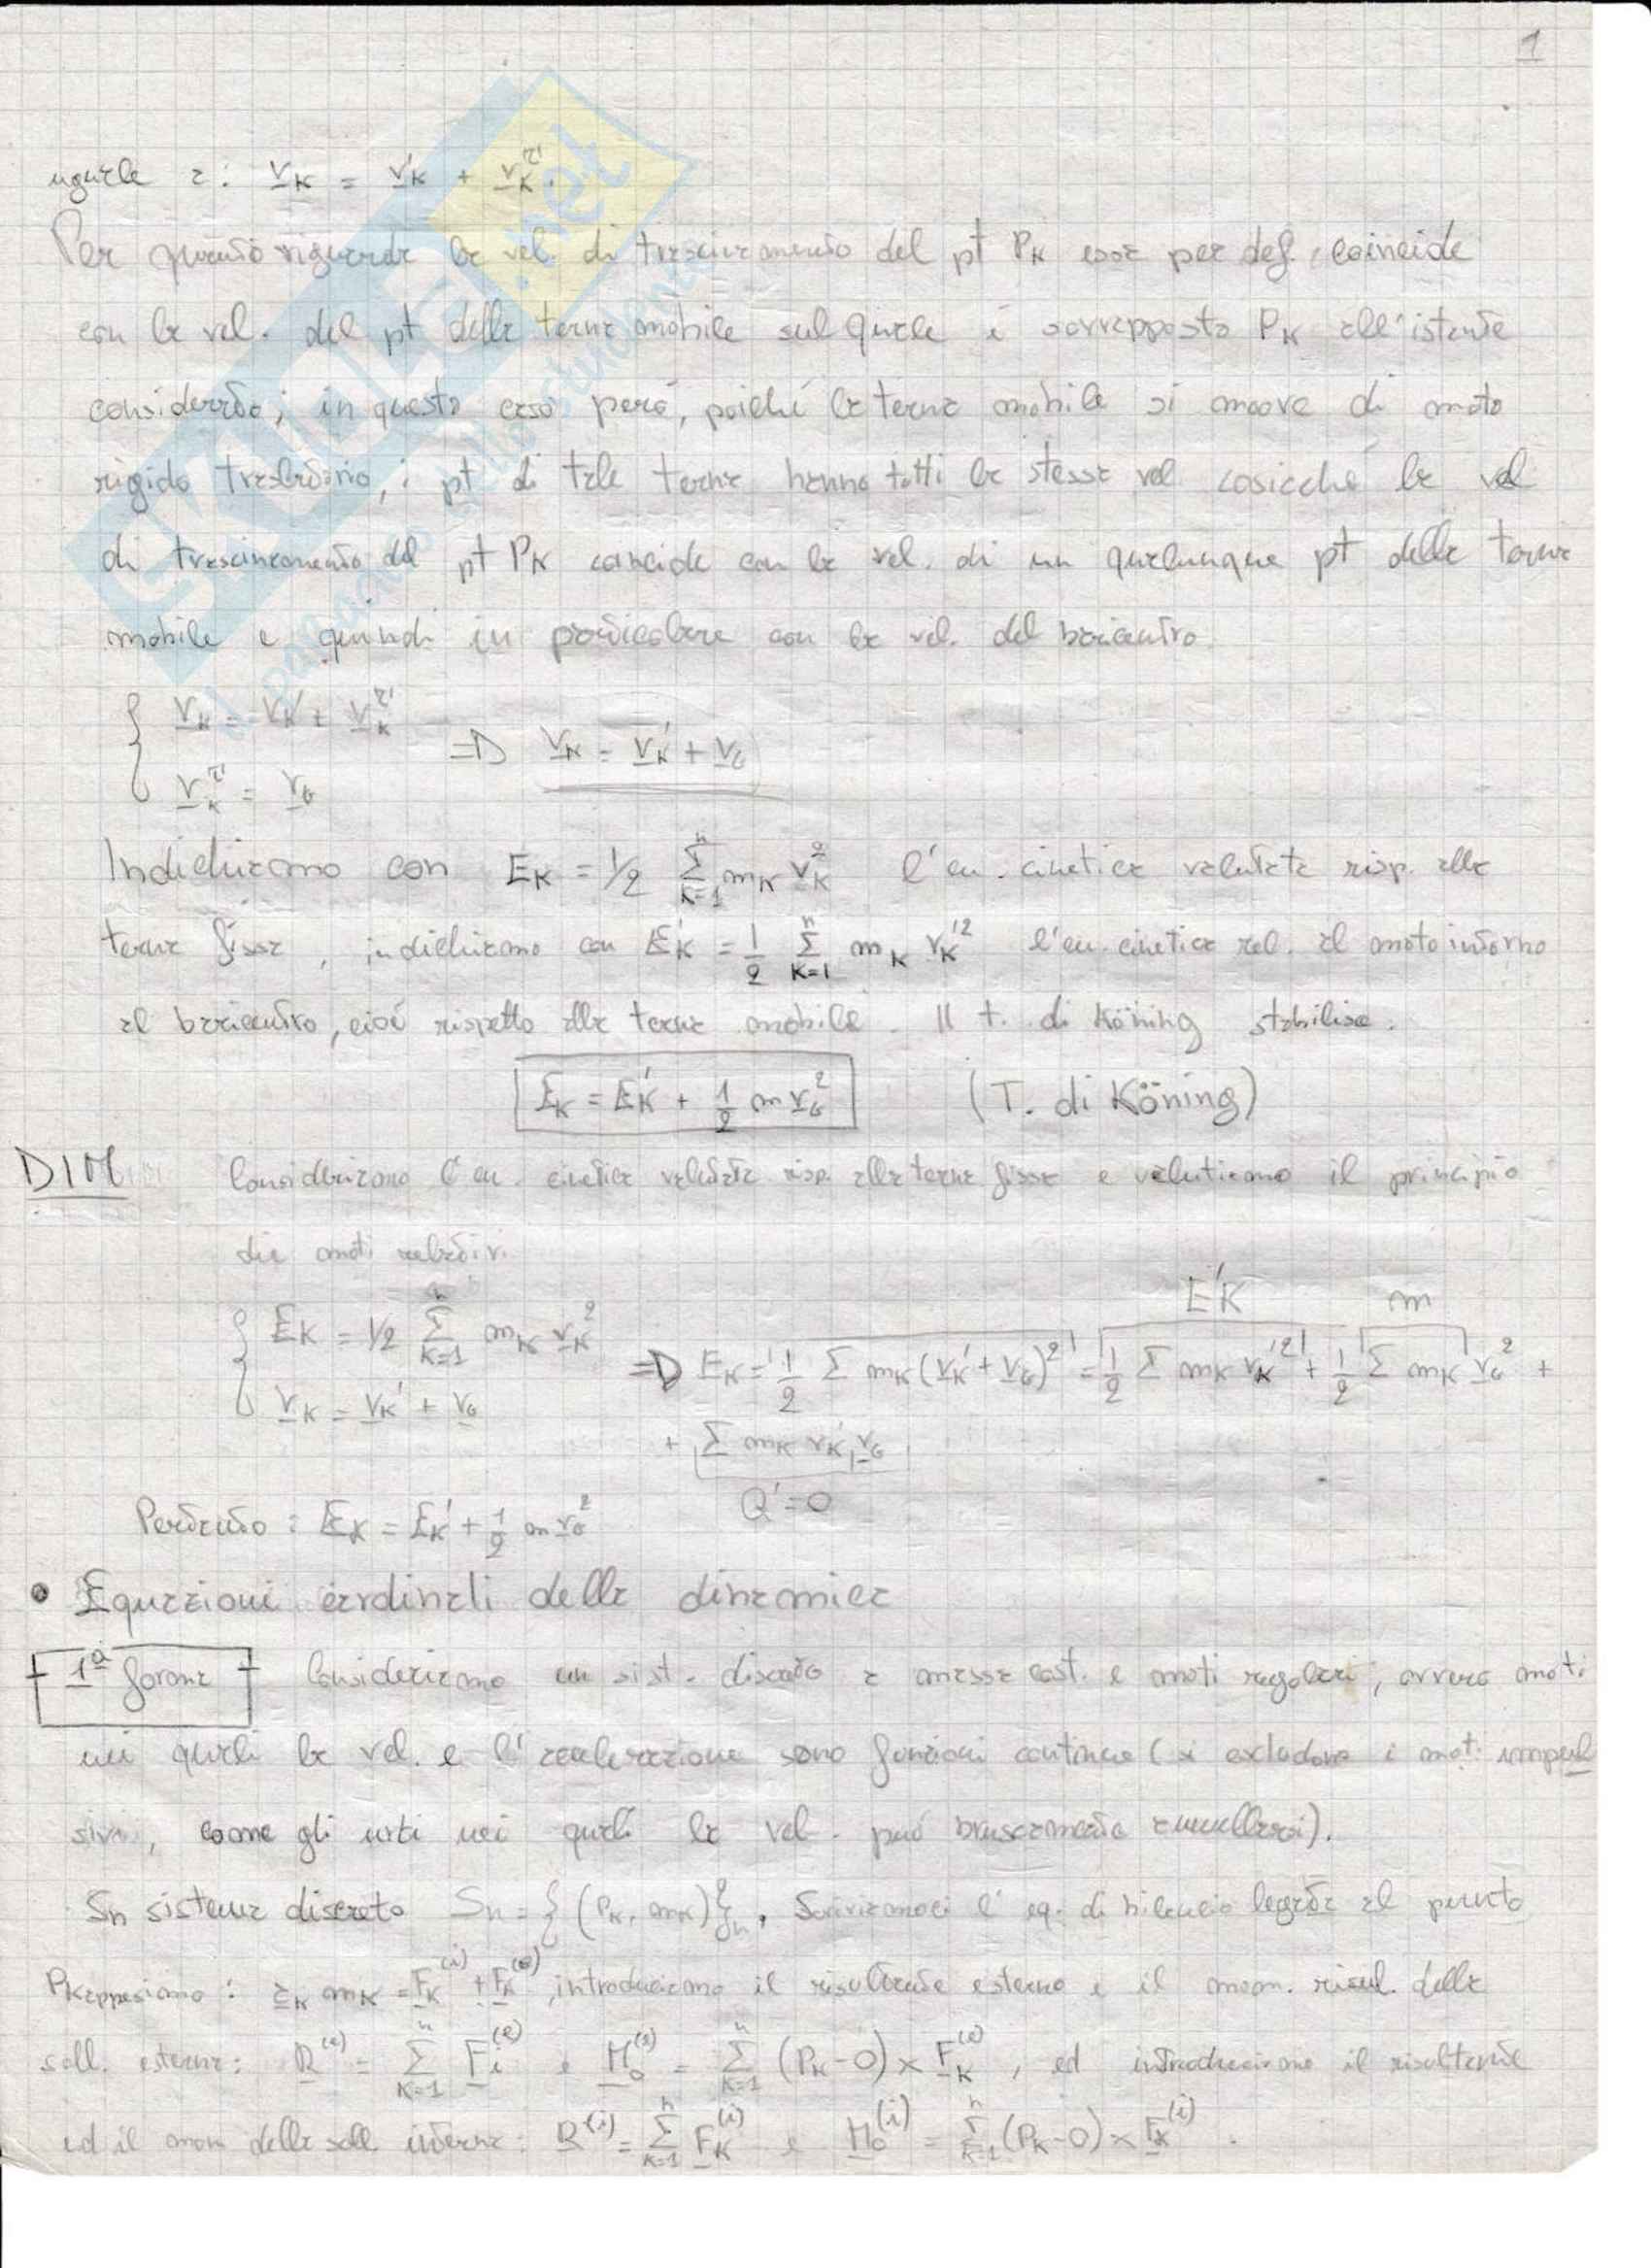 1
uguale a: v_K = v'_K + v_K^τ.
Per quanto riguarda la vel. di trascinamento del pt P_K essa per def. coincide
con la vel. del pt della terna mobile sul quale è sovrapposto P_K all'istante
considerato; in questo caso però, poiché la terna mobile si muove di moto
rigido traslatorio, i pt di tale terna hanno tutti la stessa vel. cosicché la vel
di trascinamento del pt P_K coincide con la vel. di un qualunque pt della terna
mobile e quindi in particolare con la vel. del baricentro.
{ v_K = v'_K + v_K^τ
=D v_K = v'_K + v_G
v_K^τ = v_G
Indichiamo con E_K = 1/2 Σ_{K=1}^n m_K v_K^2 l'en. cinetica valutata risp. alla
terna fissa, indichiamo con E'_K = 1/2 Σ_{K=1}^n m_K v_K'^2 l'en. cinetica rel. al moto intorno
al baricentro, cioè rispetto alla terna mobile. Il t. di Köning stabilisce:
E_K = E'_K + 1/2 m v_G^2 (T. di Köning)
DIM Consideriamo l'en. cinetica valutata risp. alla terna fissa e valutiamo il principio
dei moti relativi.
E'K m
{ E_K = 1/2 Σ_{K=1}^n m_K v_K^2
=D E_K = 1/2 Σ m_K (v'_K + v_G)^2 = 1/2 Σ m_K v_K'^2 + 1/2 Σ m_K v_G^2 +
v_K = v'_K + v_G
+ Σ m_K v'_K v_G
Q'=0
Pertanto: E_K = E'_K + 1/2 m v_G^2
• Equazioni cardinali della dinamica
1ª forma Consideriamo un sist. discreto a massa cost. e moti regolari, ovvero moti
nei quali la vel. e l'accelerazione sono funzioni continue (si escludono i moti impul
sivi, come gli urti nei quali la vel. può bruscamente annullarsi).
Sn sistema discreto Sn = {(P_K, m_K)}_n, Scriviamoci l'eq. di bilancio legata al punto
P_K appesiamo: a_K m_K = F_K^(i) + F_K^(e), introduciamo il risultante esterno e il mom. risul. delle
soll. esterne: R^(e) = Σ_{K=1}^n F_i^(e) e M_o^(s) = Σ_{K=1}^n (P_K-O) × F_K^(e), ed introduciamo il risultante
ed il mom delle soll. interne: R^(i) = Σ_{K=1}^n F_K^(i) e M_o^(i) = Σ_{K=1}^n (P_K-O) × F_K^(i).
SKUOLA.net
il paradiso dello studente